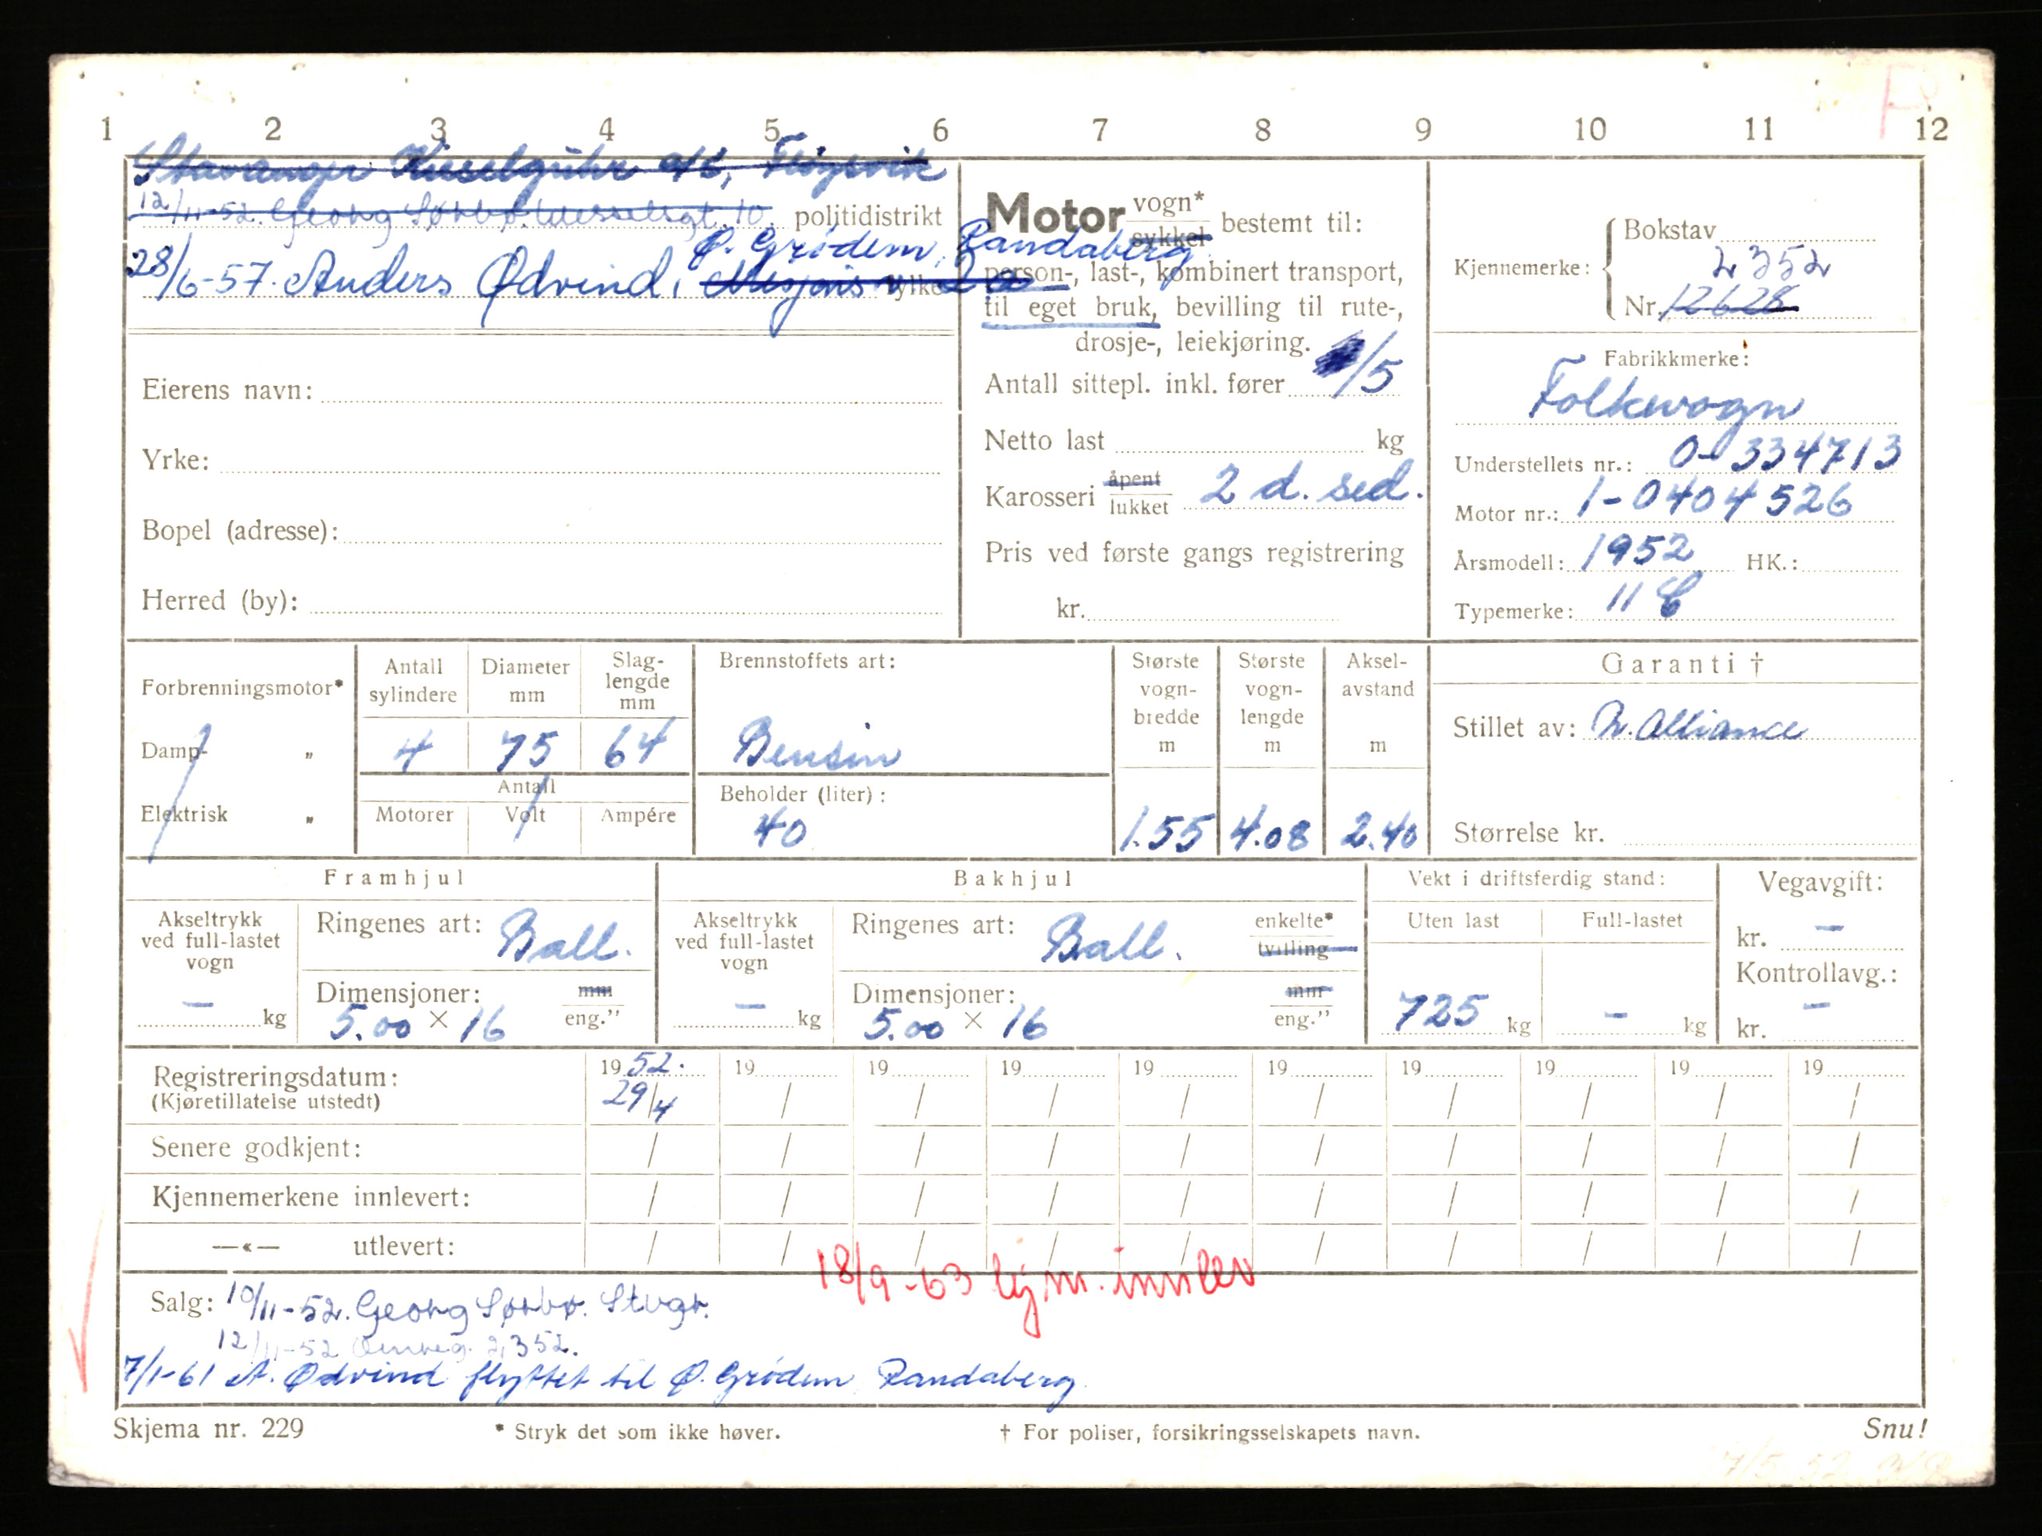 1 2 3 4 5 6 7 8 9 10 11 12
Stavanger Kieselguhr a/s,
12/11-52. Georg Sørbø. 10 politidistrikt
Ø. Grødem, Randaberg
28/6-57. Anders Ødvind, fylke
Eierens navn:
Yrke:
Bopel (adresse):
Herred (by):
Motor vogn* sykkel bestemt til:
person-, last-, kombinert transport,
til eget bruk, bevilling til rute-,
drosje-, leiekjøring.
Antall sittepl. inkl. fører /5
Netto last kg
Karosseri åpent lukket 2 d. sed.
Pris ved første gangs registrering
kr.
Kjennemerke: Bokstav
2352
Nr. 12628
Fabrikkmerke:
Folkevogn
Understellets nr.: 0-334713
Motor nr.: 1-0404526
Årsmodell: 1952 HK.:
Typemerke: 11 C
Forbrenningsmotor*
Damp- "
Elektrisk "
Antall sylindere Diameter mm Slag-lengde mm
4 75 64
Antall
Motorer Volt Ampére
Brennstoffets art:
Bensin
Beholder (liter):
40
Største vogn-bredde m Største vogn-lengde m Aksel-avstand m
1.55 4.08 2.40
Garanti †
Stillet av: N. Alliance
Størrelse kr.
Framhjul
Akseltrykk ved full-lastet vogn
– kg
Ringenes art: Ball.
Dimensjoner: mm
5.00 × 16 eng."
Bakhjul
Akseltrykk ved full-lastet vogn
– kg
Ringenes art: Ball. enkelte* tvilling
Dimensjoner: mm
5.00 × 16 eng."
Vekt i driftsferdig stand:
Uten last Full-lastet
725 kg – kg
Vegavgift:
kr. –
Kontrollavg.:
kr. –
Registreringsdatum: 1952. 19 19 19 19 19 19 19 19 19
(Kjøretillatelse utstedt) 29/4 / / / / / / / / /
Senere godkjent: / / / / / / / / / /
Kjennemerkene innlevert: / / / / / / / / / /
—«— utlevert: / / / / / / / / / /
18/9-63 kjm. innlev
Salg: 10/11-52. Georg Sørbø. Stvgr.
12/11-52 Omreg. 2352.
7/1-61 A. Ødvind flyttet til Ø. Grødem, Randaberg
Skjema nr. 229 * Stryk det som ikke høver. † For poliser, forsikringsselskapets navn. Snu!